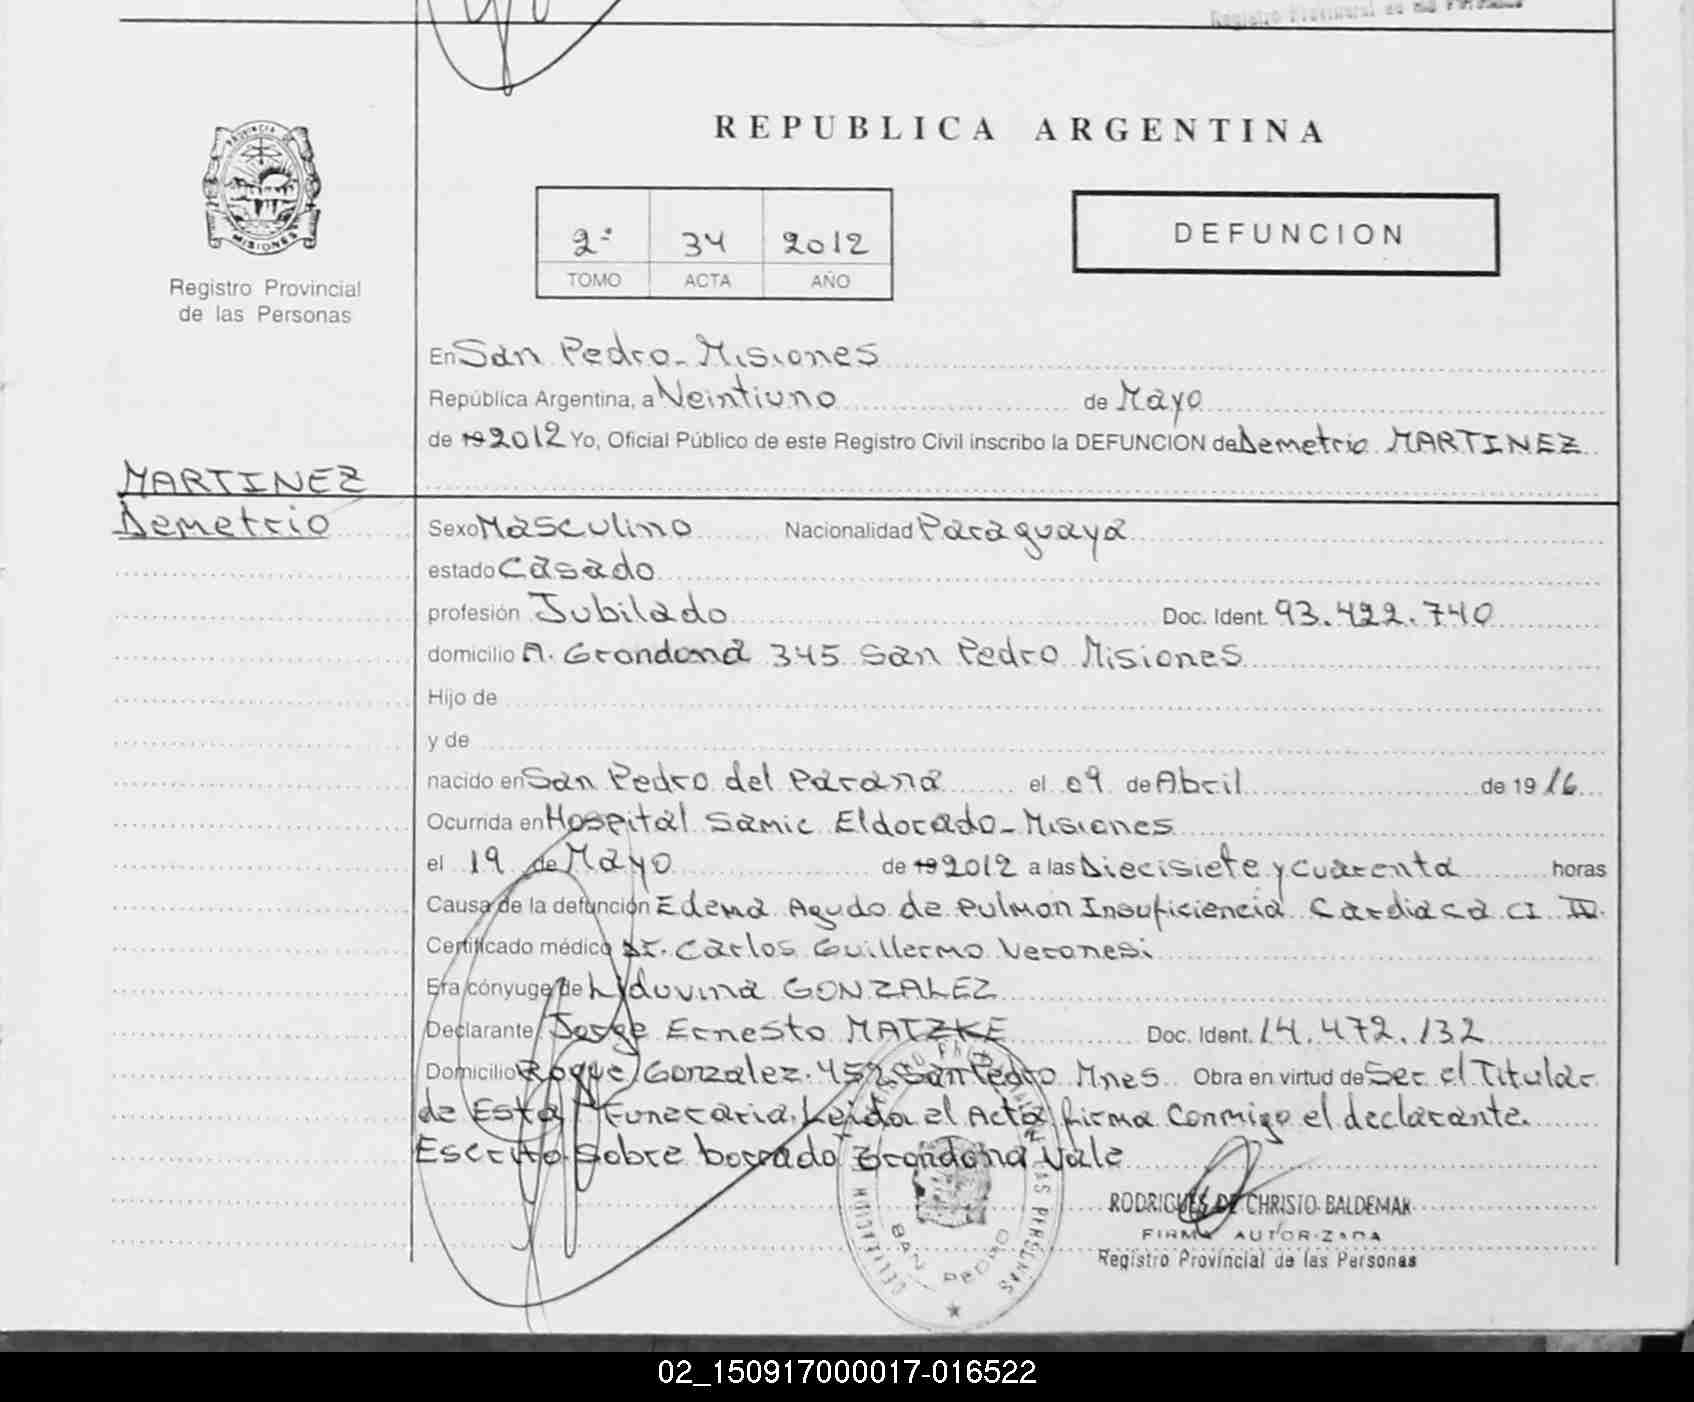 Registro Provincial de las Personas
PROVINCIA DE
MISIONES
Registro Provincial
de las Personas
REPUBLICA ARGENTINA
2º 34 2012
TOMO ACTA AÑO
DEFUNCION
En San Pedro - Misiones
República Argentina, a Veintiuno de Mayo
de 19 2012 Yo, Oficial Público de este Registro Civil inscribo la DEFUNCION de Demetrio MARTINEZ
MARTINEZ
Demetrio
Sexo Masculino Nacionalidad Paraguaya
estado Casado
profesión Jubilado Doc. Ident. 93.422.740
domicilio A. Grondona 345 San Pedro Misiones
Hijo de
y de
nacido en San Pedro del Parana el 09 de Abril de 19 16
Ocurrida en Hospital Samic Eldorado - Misiones
el 19 de Mayo de 19 2012 a las Diecisiete y cuarenta horas
Causa de la defunción Edema Agudo de Pulmon Insuficiencia Cardiaca CI IV.
Certificado médico Dr. Carlos Guillermo Veronesi
Era cónyuge de Liduvina GONZALEZ
Declarante Jorge Ernesto MATZKE Doc. Ident. 14.472.132
Domicilio Roque Gonzalez 452 San Pedro Mnes Obra en virtud de Ser el Titular
de Esta Funeraria. Leida el Acta firma Conmigo el declarante.
Escrito sobre borrado Grondona Vale
SAN PEDRO
RODRIGUES DE CHRISTO BALDEMAR
FIRMA AUTORIZADA
Registro Provincial de las Personas
02_150917000017-016522